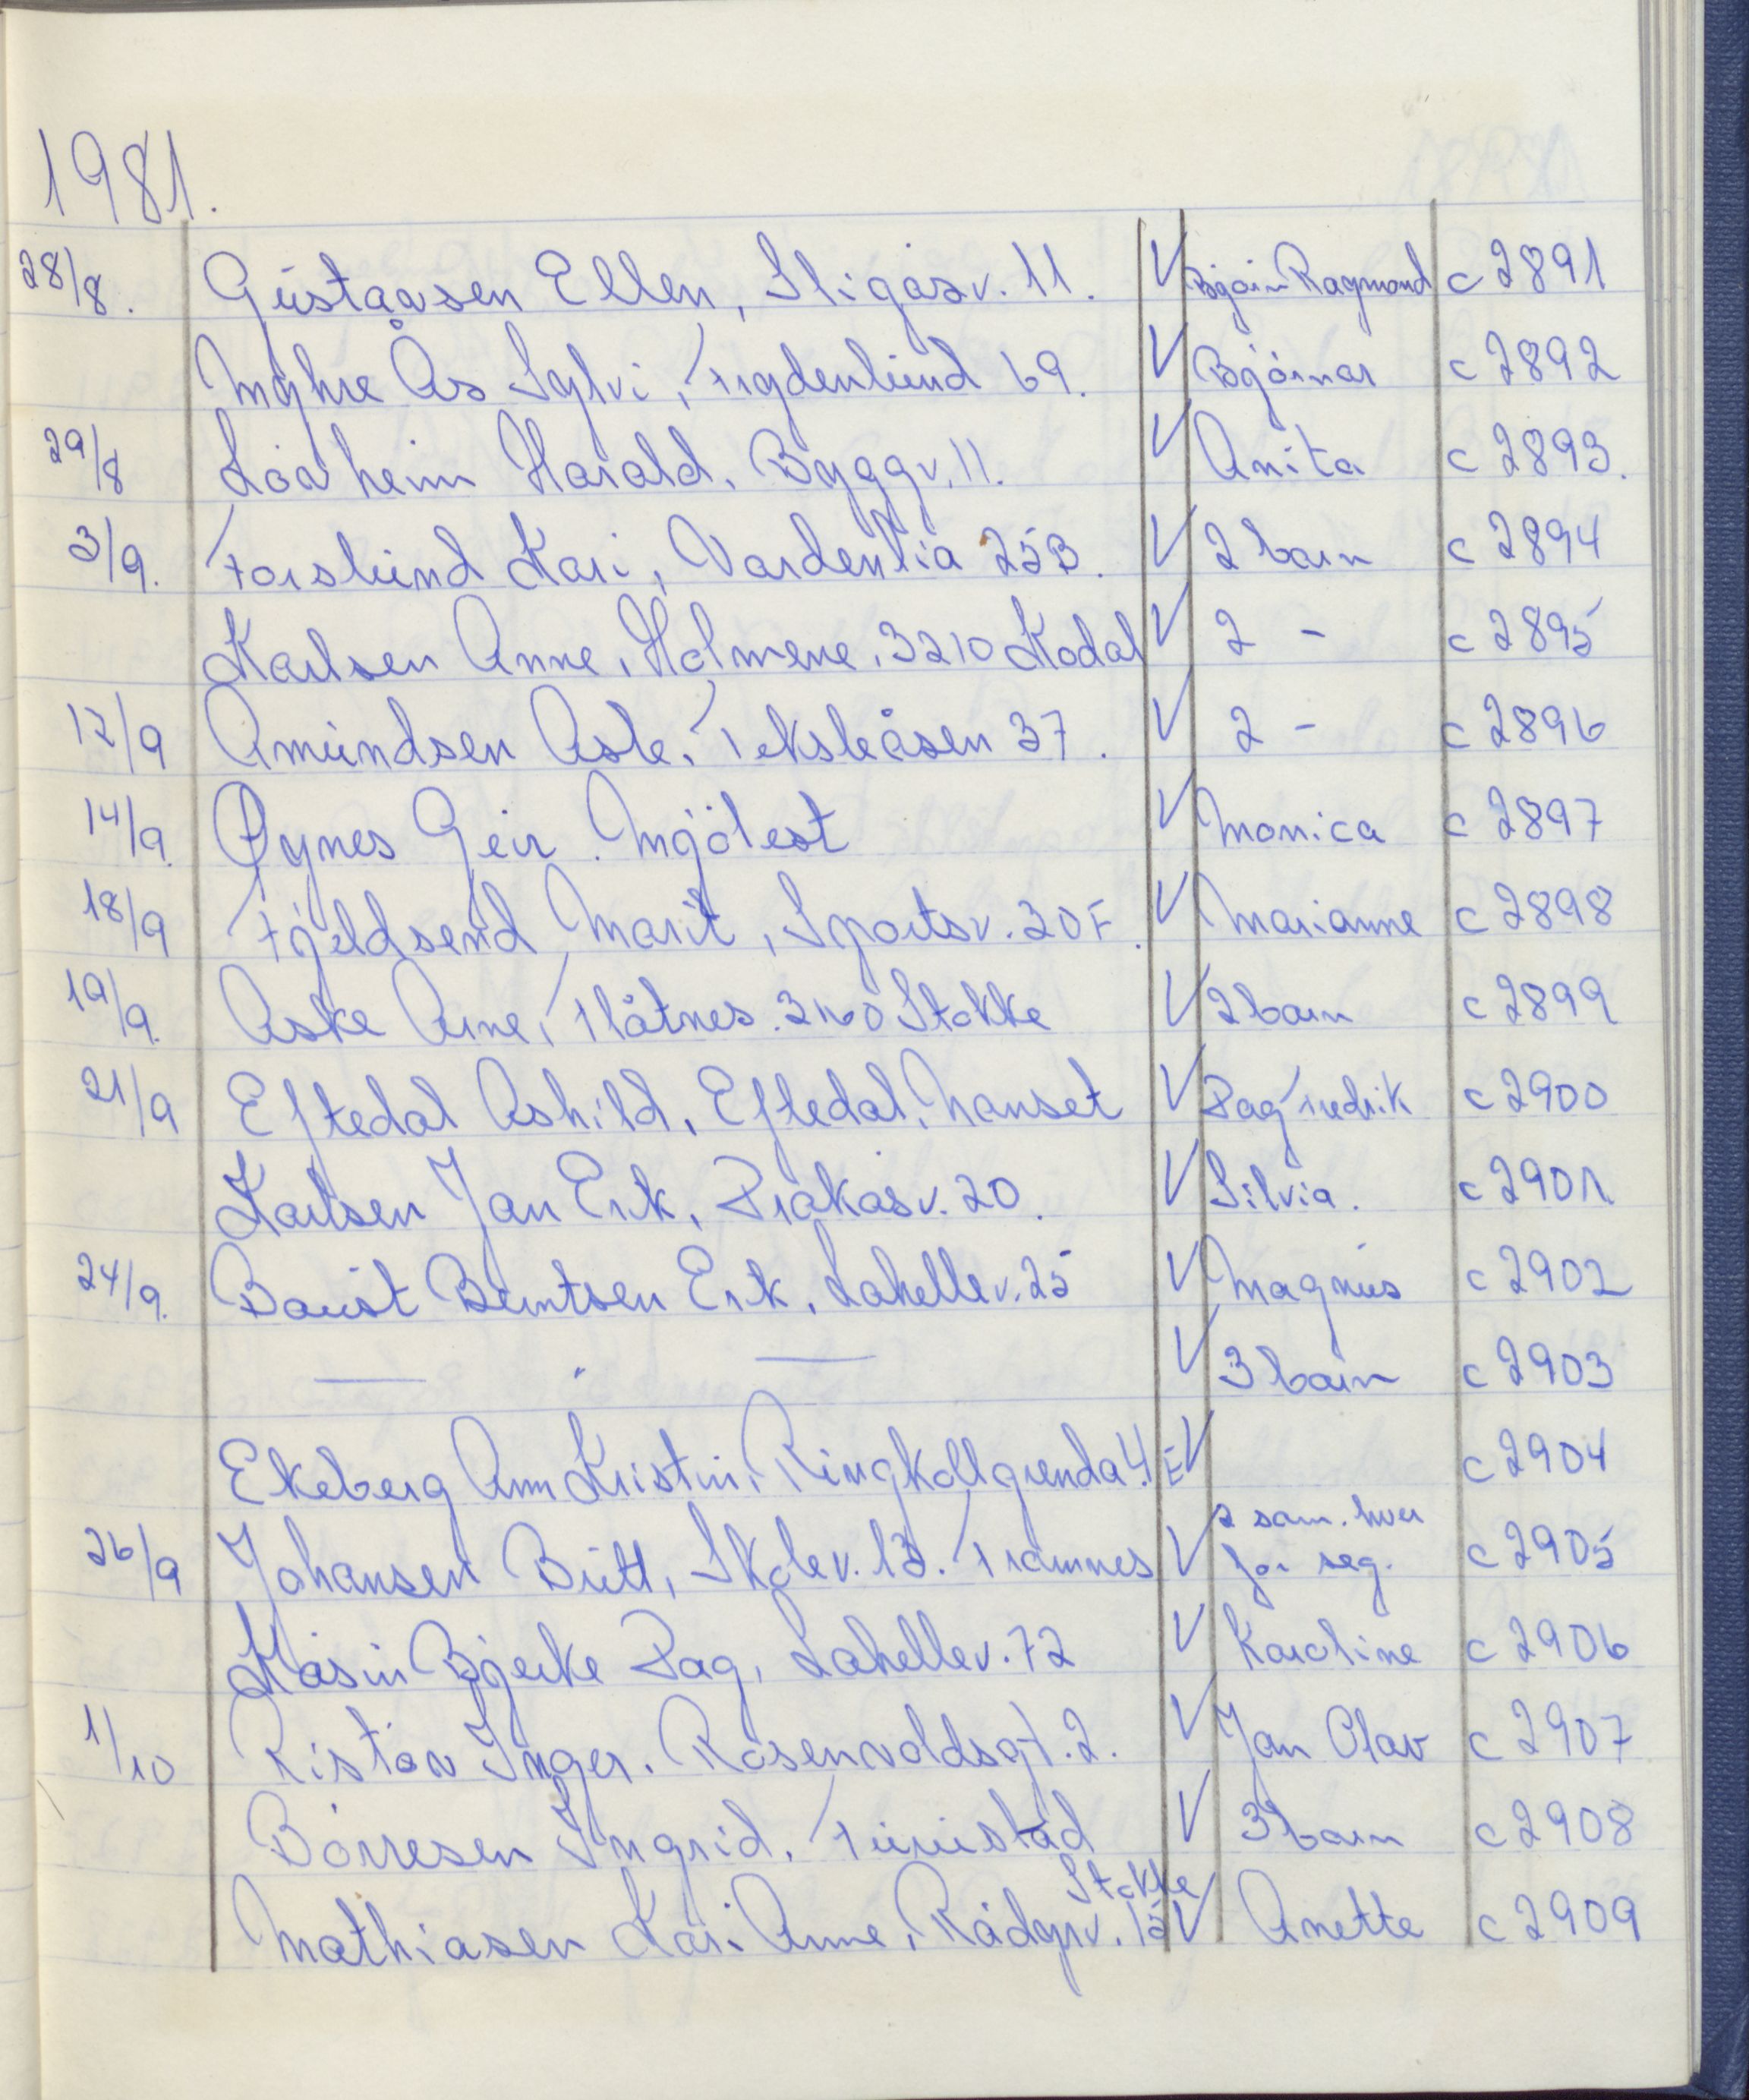 1981.
28/8. Gustavsen Ellen, Stigåsv. 11. V Bjørn Raymond c 2891
Myhre Ås Sylvi, Frydenlund 69. V Bjørnar c 2892
29/8 Lövheim Harald, Byggv. 11. V Anita c 2893.
3/9. Forslund Kari, Vardenlia 25B. V 2 barn c 2894
Karlsen Anne, Holmene, 3210 Kodal V 2 - c 2895
12/9 Amundsen Asle, Feksleåsen 37. V 2 - c 2896
14/9. Øynes Geir. Mjölest V Monica c 2897
18/9 Fjeldsend Marit, Sportsv. 20F. V Marianne c 2898
19/9. Aske Arne, Flåtnes. 3160 Stokke V 2 barn c 2899
21/9 Eftedal Ashild, Eftedal, Nanset V Dag Fredrik c 2900
Karlsen Jan Erik, Drakåsv. 20. V Silvia. c 2901
24/9. Baust Berntsen Erik, Lahellev. 25 V Magnus c 2902
— " — V 3 barn c 2903
Ekeberg Ann Kristin, Ringkollgrenda 4 E V c 2904
26/9 Johansen Britt, Skolev. 13. Framnes V 2 sam. hver for seg. c 2905
Kåsin Bjerke Dag, Lahellev. 72 V Karoline c 2906
1/10 Ristön Inger. Rosenvoldsgt. 2. V Jan Olav c 2907
Börresen Ingrid. Furustad V 3 barn c 2908
Stokke
Mathiasen Kari Anne, Rådyrv. 15 V Anette c 2909